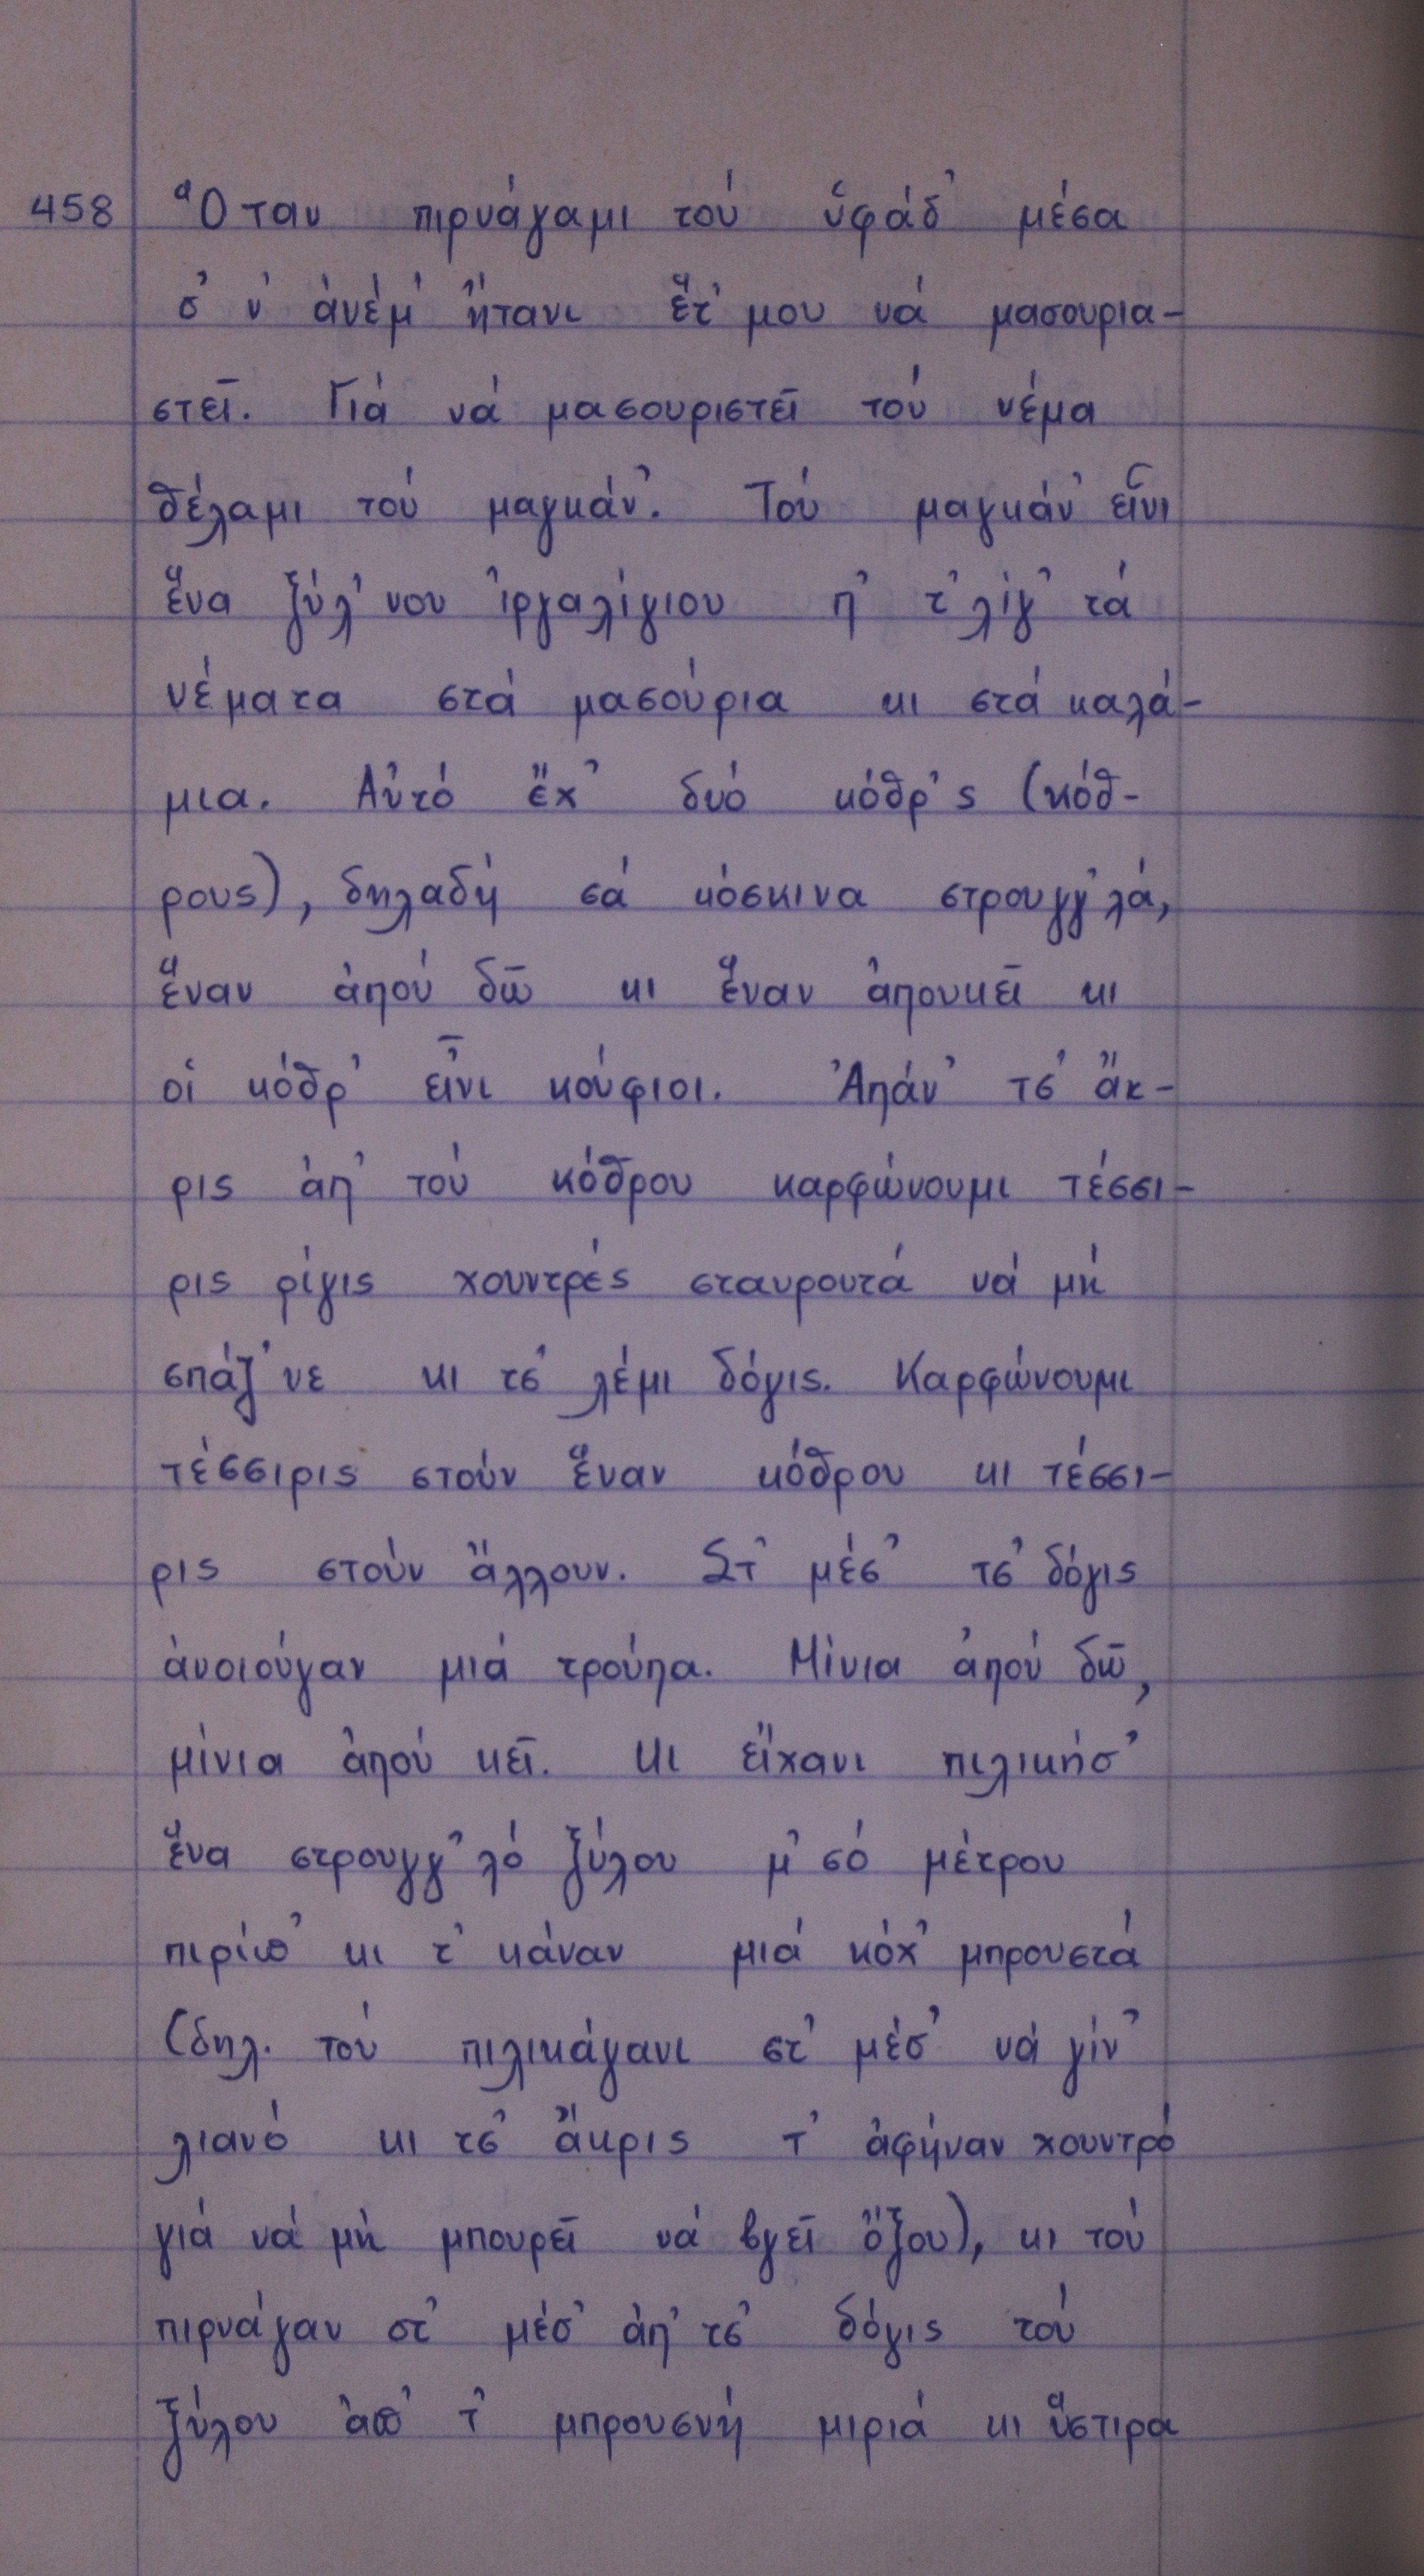 458 Ὅταν πιρνάγαμι τού ὑφάδ' μέσα
σ' ν' ἀνέμ' ἤτανι ἕτ'μου νά μασουρια-
στεῖ. Γιά νά μασουριστεῖ τού νέμα
θέλαμι τού μαγκάν'. Τού μαγκάν' εἶνι
ἕνα ξύλ'νου ἰργαλίγιου π' τ'λίγ' τά
νέματα στά μασούρια κι στά καλά-
μια. Αὐτό ἔχ' δυό κόθρ'ς (κόθ-
ρους), δηλαδή σά κόσκινα στρουγγ'λά,
ἕναν ἀπού δῶ κι ἕναν ἀπουκεῖ κι
οἱ κόθρ' εἶνι κούφιοι. Ἀπάν' τσ' ἄκ-
ρις ἀπ' τού κόθρου καρφώνουμι τέσσι-
ρις ρίγις χουντρές σταυρουτά νά μή
σπάζ'νε κι τσ' λέμι δόγις. Καρφώνουμι
τέσσιρις στούν ἕναν κόθρου κι τέσσι-
ρις στούν ἄλλουν. Στ' μέσ' τσ' δόγις
ἀνοιούγαν μιά τρούπα. Μίνια ἀπού δῶ,
μίνια ἀπού κεῖ. Κι εἴχανι πιλικήσ'
ἕνα στρουγγ'λό ξύλου μ'σό μέτρου
πιρίπ' κι τ' κάναν μιά κόχ' μπρουστά
(δηλ. τού πιλικάγανι στ' μέσ' νά γίν'
λιανό κι τσ' ἄκρις τ' ἀφήναν χουντρό
γιά νά μή μπουρεῖ νά βγεῖ ὄξου), κι τού
πιρνάγαν στ' μέσ' ἀπ' τσ' δόγις τού
ξύλου ἀπ' τ' μπρουσνή μιριά κι ὕστιρα